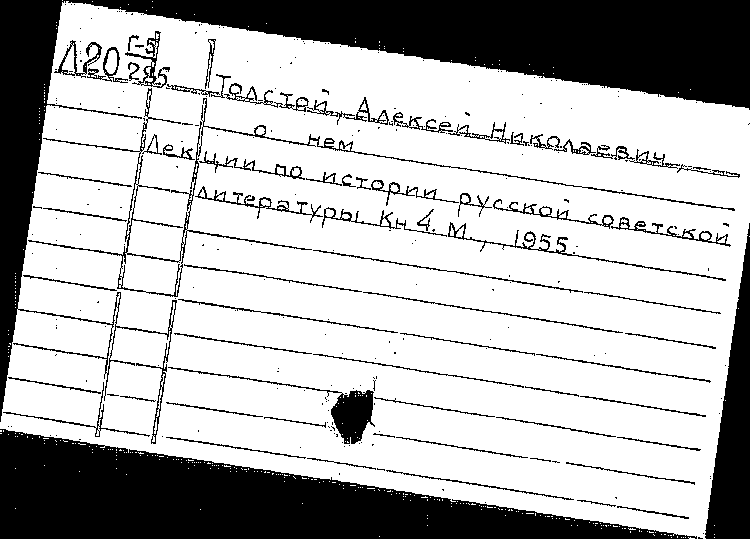 Л20 Г-5
285
Толстой, Алексей Николаевич,
о нем
Лекции по истории русской советской
литературы. Кн 4. М., 1955.